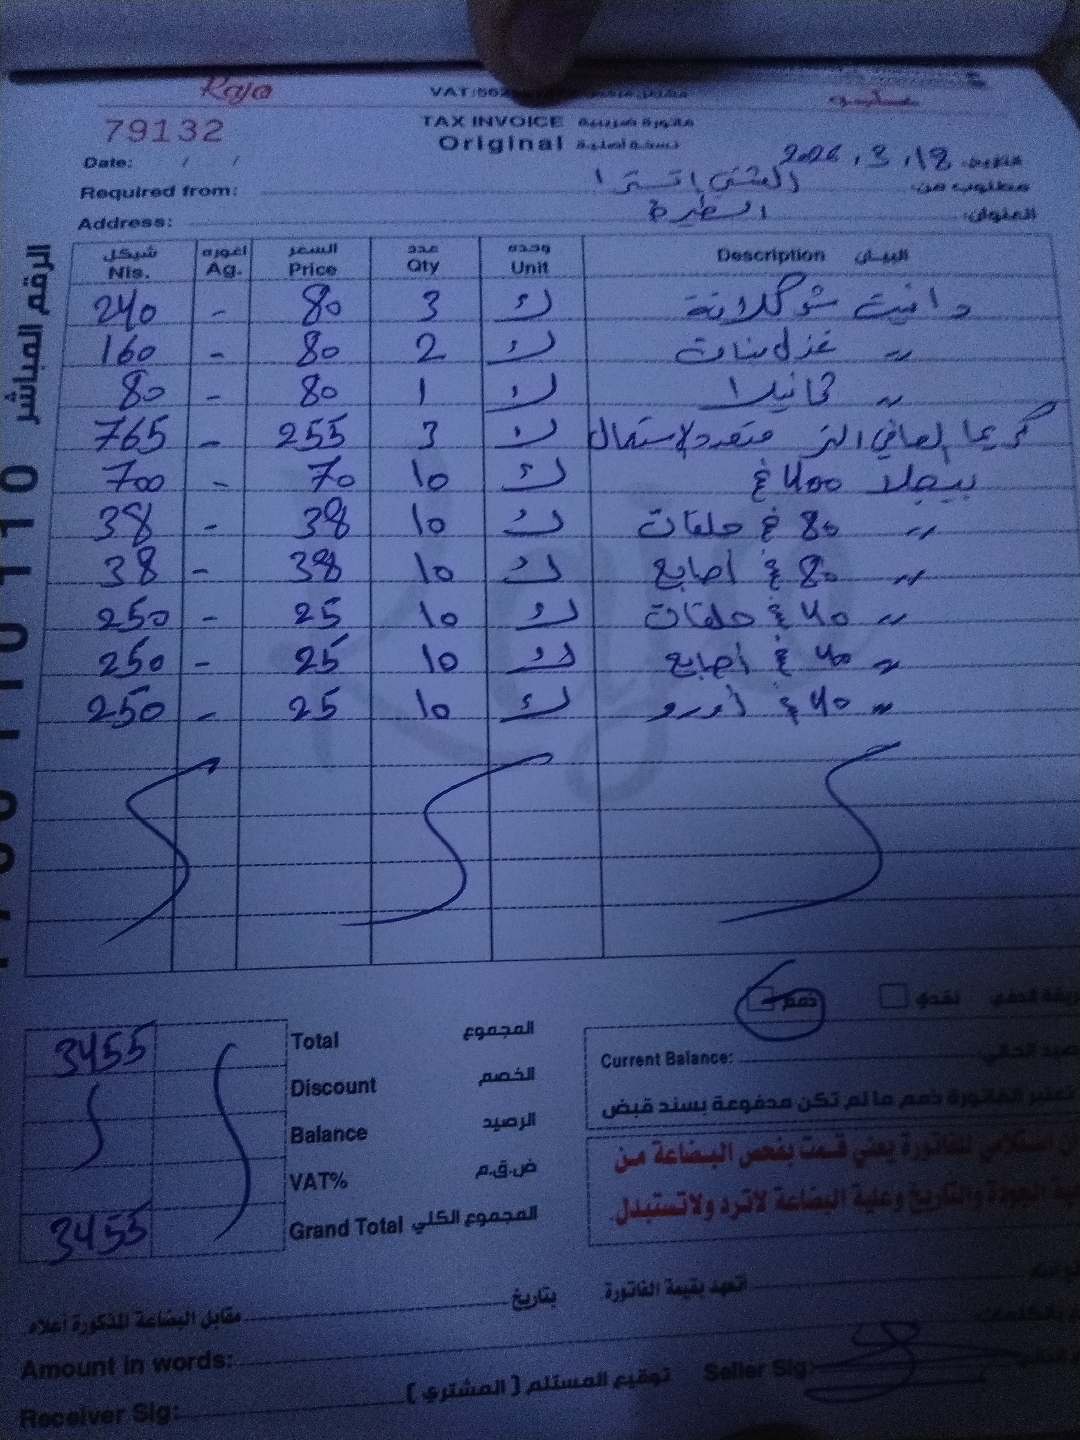 Raja
79132
VAT:562
TAX INVOICE فاتورة ضريبية
Original نسخة أصلية
Date: / /
2026.3.18
Required from: مطلوب من:
Address: الطيرة العنوان:
شيكل Nis. أغورة Ag. السعر Price عدد Qty وحدة Unit Description البيان
240 - 80 3 ك دانيت شوكلاتة
160 - 80 2 ك " غزل بنات
80 - 80 1 ك "
765 - 255 3 ك كريما
700 - 70 10 ك بيجلا 400 غ
38 - 38 10 ك " 80 غ حلقات
38 - 38 10 ك " 80 غ أصابع
250 - 25 10 ك " 40 غ حلقات
250 - 25 10 ك " 40 غ أصابع
250 - 25 10 ك " 40 غ أورو
الرقم المباشر
1700 110 110
نقدي ذمم
3455 Total المجموع
Discount الخصم
Balance الرصيد
VAT% ض.ق.م
3455 Grand Total المجموع الكلي
Current Balance:
تعتبر الفاتورة ذمم ما لم تكن مدفوعة بسند قبض
استلامي للفاتورة يعني قمت بفحص البضاعة من
الجودة والتاريخ وعلية البضاعة لاترد ولاتستبدل.
اتعهد بقيمة الفاتورة بتاريخ مقابل البضاعة المذكورة أعلاه.
Amount in words:
Seller Sig:
Receiver Sig: توقيع المستلم (المشتري)